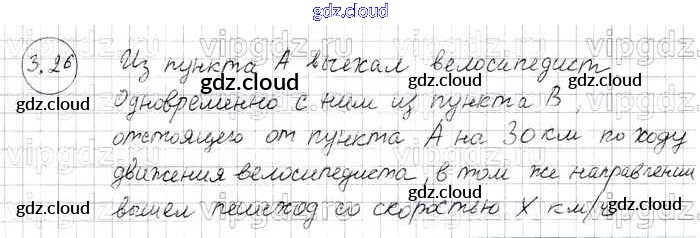 gdz.cloud
3.26 Из пункта А выехал велосипедист.
gdz.cloud gdz.cloud
Одновременно с ним из пункта В,
gdz.cloud gdz.cloud
отстоящего от пункта А на 30 км по ходу
движения велосипедиста, в том же направлении
вышел пешеход со скоростью х км/ч
gdz.cloud gdz.cloud